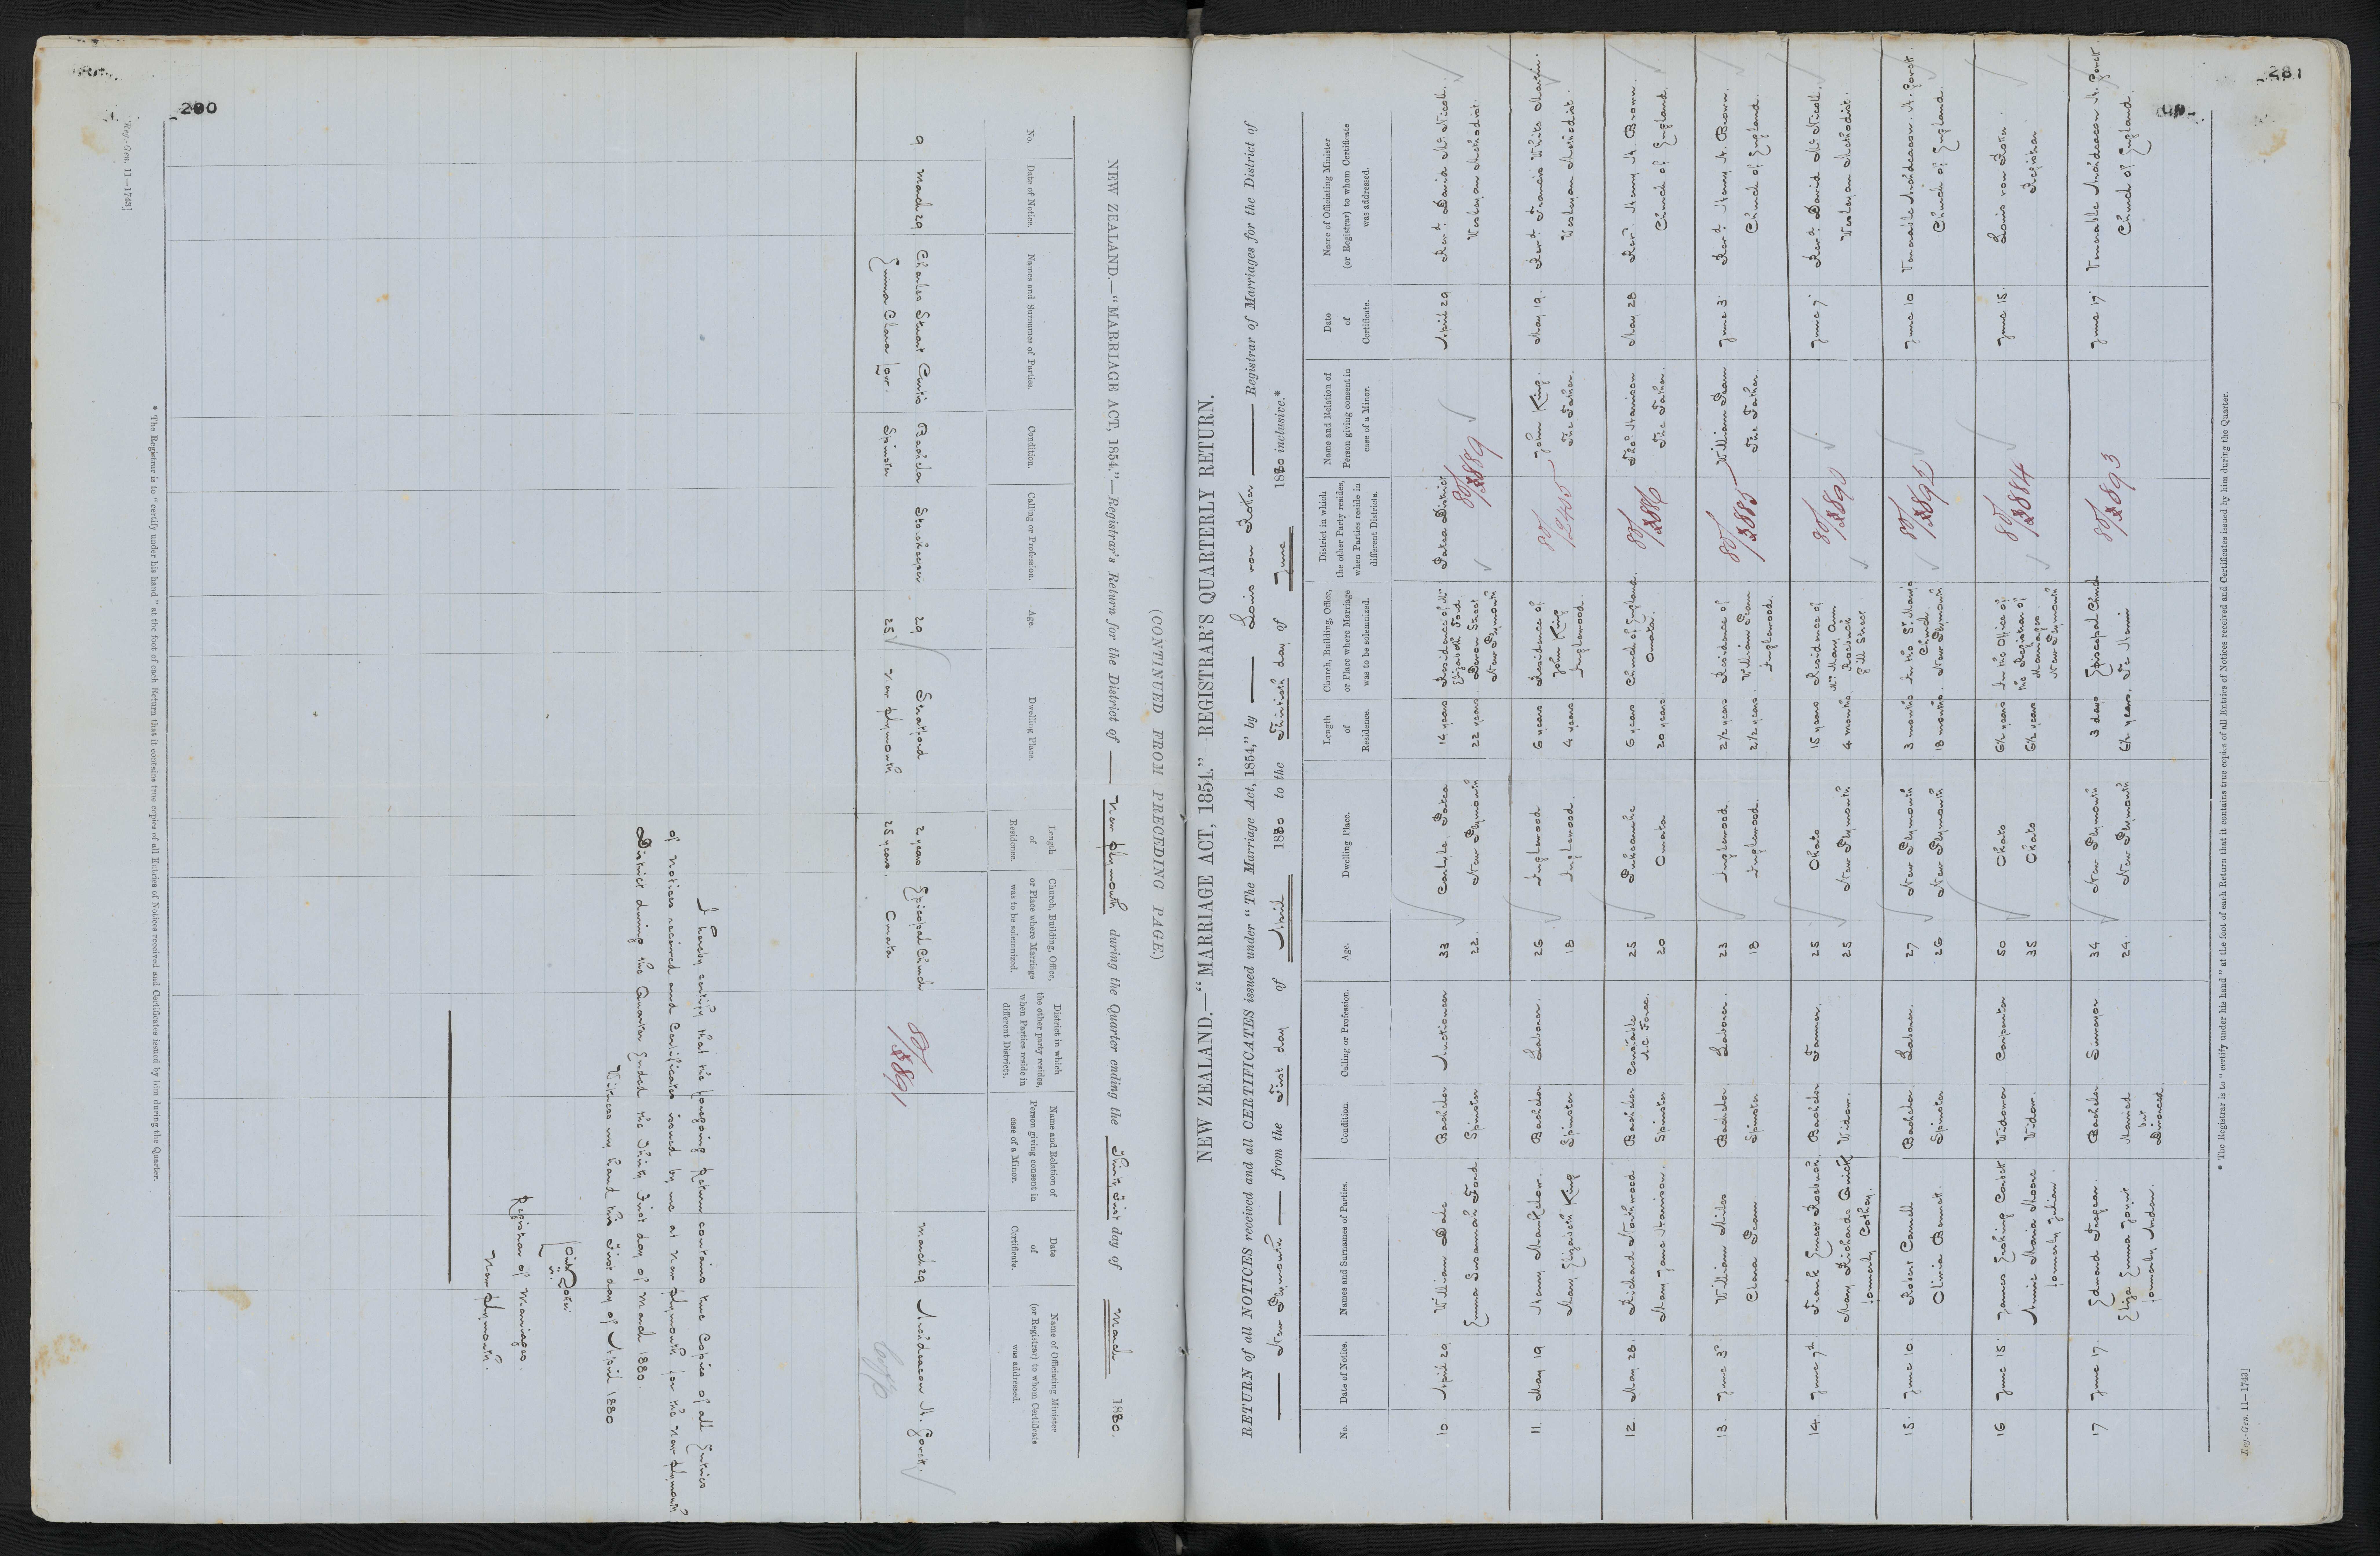 280
(CONTINUED FROM PRECEDING PAGE.)
NEW ZEALAND.—"MARRIAGE ACT, 1854."—Registrar's Return for the District of New Plymouth during the Quarter ending the Thirty First day of March 1880.
No.
Date of Notice.
Names and Surnames of Parties.
Condition.
Calling or Profession.
Age.
Dwelling Place.
Length of Residence.
Church, Building, Office, or Place where Marriage was to be solemnized.
District in which the other party resides, when Parties reside in different Districts.
Name and Relation of Person giving consent in case of a Minor.
Date of Certificate.
Name of Officiating Minister (or Registrar) to whom Certificate was addressed.
9. March 29 Charles Stuart Curtis Bachelor Storekeeper 29 Stratford 2 years Episcopal Church 80/2891 March 29 Archdeacon H. Govett.
Emma Clara Spinster 25 New Plymouth 25 years. Omata
I hereby certify that the foregoing Return contains true Copies of all Entries
of notices received and Certificates issued by me at New Plymouth for the New Plymouth
District during the Quarter Ended the Thirty First day of March 1880.
Witness my hand this First day of April 1880
Registrar of Marriages.
New Plymouth.
* The Registrar is to "certify under his hand" at the foot of each Return that it contains true copies of all Entries of Notices received and Certificates issued by him during the Quarter.
Reg.-Gen. 11—1743]
281
NEW ZEALAND.—"MARRIAGE ACT, 1854."—REGISTRAR'S QUARTERLY RETURN.
RETURN of all NOTICES received and all CERTIFICATES issued under "The Marriage Act, 1854," by Louis von Rotter Registrar of Marriages for the District of
New Plymouth from the First day of April 1880 to the Thirtieth day of June 1880 inclusive.*
No.
Date of Notice.
Names and Surnames of Parties.
Condition.
Calling or Profession.
Age.
Dwelling Place.
Length of Residence.
Church, Building, Office, or Place where Marriage was to be solemnized.
District in which the other Party resides, when Parties reside in different Districts.
Name and Relation of Person giving consent in case of a Minor.
Date of Certificate.
Name of Officiating Minister (or Registrar) to whom Certificate was addressed.
10. April 29 William Dale Bachelor Auctioneer 33 Carlyle, Patea 14 years Residence of Mrs Elizabeth Ford Patea District 80/2889 April 29 Revd. David McNicoll.
Emma Susannah Ford Spinster 22 New Plymouth 22 years Devon Street New Plymouth Wesleyan Methodist
11. May 19 Henry Bachelor Laborer. 26 Inglewood 6 years Residence of John King. May 19. Revd. Francis White Martin.
Mary Elizabeth King Spinster 18 Inglewood. 4 years John King Inglewood. The Father. Wesleyan Methodist.
12. May 28. Richard Northwood Bachelor Constable A.C. Force. 25 Pukearuhe 6 years Church of England. 80/2886 Thos. Harrison May 28 Revd. Henry H. Brown.
Mary Jane Harrison. Spinster 20 Omata 20 years. Omata. The Father. Church of England.
13. June 3rd. William Miles Bachelor Laborer. 23 Inglewood. 2½ years Residence of 80/2885 William June 3. Revd. Henry H. Brown.
Clara Spinster. 18 Inglewood. 2½ years. William Inglewood. The Father. Church of England.
14. June 7th Frank Ernest Roebuck Bachelor Farmer. 25 Okato 15 years Residence of 80/2890 June 7. Revd. David McNicoll.
Mary Richards Quick formerly Cothey. Widow. 25 New Plymouth 4 months. Mrs Mary Ann Roebuck Gill Street. Wesleyan Methodist.
15. June 10. Robert Cannell Bachelor Laborer. 27 New Plymouth 3 months In the St. Mary's Church. 80/2892 June 10 Venerable Archdeacon H. Govett.
Olivia Bennett. Spinster 26 New Plymouth 18 months. New Plymouth Church of England.
16 June 15. James Erskine Corbett Widower Carpenter 50 Okato 6½ years In the Office of 80/2884 June 15. Louis von Rotter.
Annie Maria Moore formerly Julian. Widow. 35 Okato 6½ years. the Registrar of Marriages. New Plymouth. Registrar
17 June 17. Edmond Bachelor. Surveyor. 34 New Plymouth 3 days Episcopal Church 80/2893 June 17. Venerable Archdeacon H. Govett.
Eliza Emma formerly Married but Divorced. 24 New Plymouth 6½ years. Te Henui Church of England.
* The Registrar is to "certify under his hand" at the foot of each Return that it contains true copies of all Entries of Notices received and Certificates issued by him during the Quarter.
Reg.-Gen. 11—1743]